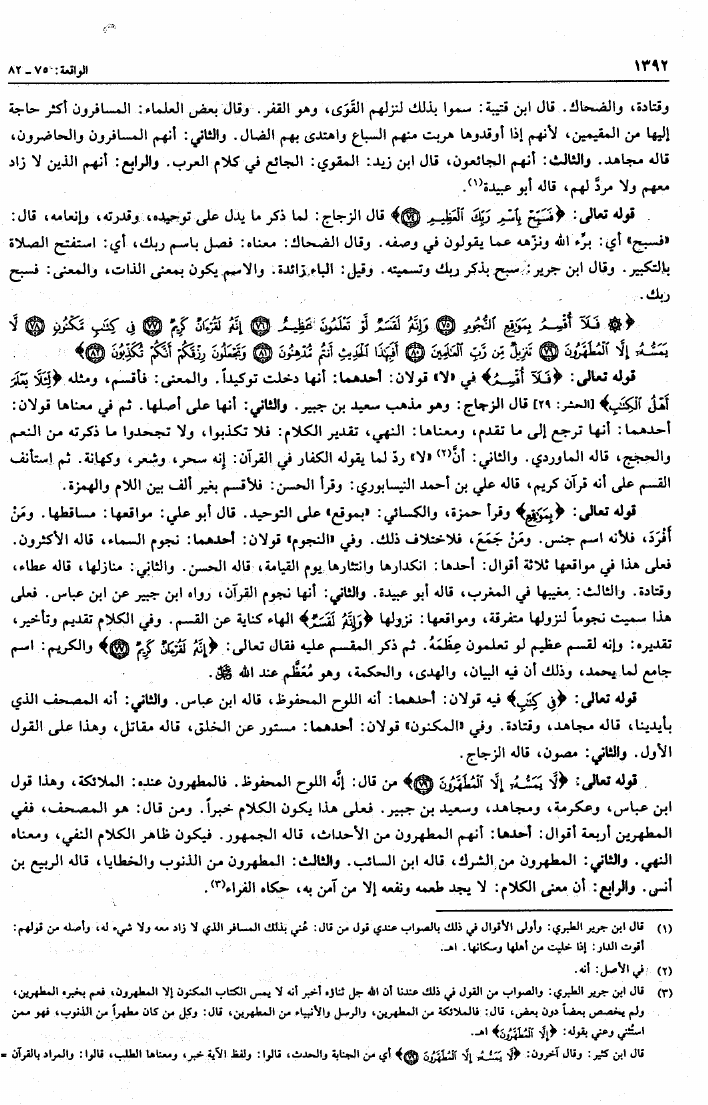 ١٣٩٢
الواقعة: ٧٥ ـ ٨٢
وقتادة، والضحاك. قال ابن قتيبة: سموا بذلك لنزلهم القَوَى، وهو القفر. وقال بعض العلماء: المسافرون أكثر حاجة
إليها من المقيمين، لأنهم إذا أوقدوها هربت منهم السباع واهتدى بهم الضال. والثاني: أنهم المسافرون والحاضرون،
قاله مجاهد. والثالث: أنهم الجائعون، قال ابن زيد: المقوي: الجائع في كلام العرب. والرابع: أنهم الذين لا زاد
معهم ولا مردَّ لهم، قاله أبو عبيدة(١).
قوله تعالى: ﴿فَسَبِّحْ بِاسْمِ رَبِّكَ الْعَظِيمِ ٧٤﴾ قال الزجاج: لما ذكر ما يدل على توحيده، وقدرته، وإنعامه، قال:
«فسبح» أي: برِّء الله ونزِّهه عما يقولون في وصفه. وقال الضحاك: معناه: فصل باسم ربك، أي: استفتح الصلاة
بالتكبير. وقال ابن جرير: سبح بذكر ربك وتسميته. وقيل: الباء زائدة. والاسم يكون بمعنى الذات، والمعنى: فسبح
ربك.
﴿۞ فَلَا أُقْسِمُ بِمَوَاقِعِ النُّجُومِ ٧٥ وَإِنَّهُ لَقَسَمٌ لَّوْ تَعْلَمُونَ عَظِيمٌ ٧٦ إِنَّهُ لَقُرْءَانٌ كَرِيمٌ ٧٧ فِي كِتَابٍ مَّكْنُونٍ ٧٨ لَّا
يَمَسُّهُ إِلَّا الْمُطَهَّرُونَ ٧٩ تَنزِيلٌ مِّن رَّبِّ الْعَالَمِينَ ٨٠ أَفَبِهَذَا الْحَدِيثِ أَنتُم مُّدْهِنُونَ ٨١ وَتَجْعَلُونَ رِزْقَكُمْ أَنَّكُمْ تُكَذِّبُونَ ٨٢﴾
قوله تعالى: ﴿فَلَا أُقْسِمُ﴾ في «لا» قولان: أحدهما: أنها دخلت توكيداً. والمعنى: فأقسم، ومثله ﴿لِئَلَّا يَعْلَمَ
أَهْلُ الْكِتَابِ﴾ [الحشر: ٢٩] قال الزجاج: وهو مذهب سعيد بن جبير. والثاني: أنها على أصلها. ثم في معناها قولان:
أحدهما: أنها ترجع إلى ما تقدم، ومعناها: النهي، تقدير الكلام: فلا تكذبوا، ولا تجحدوا ما ذكرته من النعم
والحجج، قاله الماوردي. والثاني: أنَّ(٢) «لا» ردّ لما يقوله الكفار في القرآن: إنه سحر، وشعر، وكهانة. ثم استأنف
القسم على أنه قرآن كريم، قاله علي بن أحمد النيسابوري: وقرأ الحسن: فلأقسم بغير ألف بين اللام والهمزة.
قوله تعالى: ﴿بِمَوَاقِعِ﴾ وقرأ حمزة، والكسائي: «بموقع» على التوحيد. قال أبو علي: مواقعها: مساقطها. ومَنْ
أَفْرَدَ، فلأنه اسم جنس. ومَنْ جَمَعَ، فلاختلاف ذلك. وفي «النجوم» قولان: أحدهما: نجوم السماء، قاله الأكثرون.
فعلى هذا في مواقعها ثلاثة أقوال: أحدها: انكدارها وانتثارها يوم القيامة، قاله الحسن. والثاني: منازلها، قاله عطاء،
وقتادة. والثالث: مغيبها في المغرب، قاله أبو عبيدة. والثاني: أنها نجوم القرآن، رواه ابن جبير عن ابن عباس. فعلى
هذا سميت نجوماً لنزولها متفرقة، ومواقعها: نزولها ﴿وَإِنَّهُ لَقَسَمٌ﴾ الهاء كناية عن القسم. وفي الكلام تقديم وتأخير،
تقديره: وإنه لقسم عظيم لو تعلمون عِظَمَهُ. ثم ذكر المقسم عليه فقال تعالى: ﴿إِنَّهُ لَقُرْءَانٌ كَرِيمٌ ٧٧﴾ والكريم: اسم
جامع لما يحمد، وذلك أن فيه البيان، والهدى، والحكمة، وهو مُعَظَّم عند الله ﷻ.
قوله تعالى: ﴿فِي كِتَابٍ﴾ فيه قولان: أحدهما: أنه اللوح المحفوظ، قاله ابن عباس. والثاني: أنه المصحف الذي
بأيدينا، قاله مجاهد، وقتادة. وفي «المكنون» قولان: أحدهما: مستور عن الخلق، قاله مقاتل، وهذا على القول
الأول. والثاني: مصون، قاله الزجاج.
قوله تعالى: ﴿لَّا يَمَسُّهُ إِلَّا الْمُطَهَّرُونَ ٧٩﴾ من قال: إنَّه اللوح المحفوظ. فالمطهرون عنده: الملائكة، وهذا قول
ابن عباس، وعكرمة، ومجاهد، وسعيد بن جبير. فعلى هذا يكون الكلام خبراً. ومن قال: هو المصحف، ففي
المطهرين أربعة أقوال: أحدها: أنهم المطهرون من الأحداث، قاله الجمهور. فيكون ظاهر الكلام النفي، ومعناه
النهي. والثاني: المطهرون من الشرك، قاله ابن السائب. والثالث: المطهرون من الذنوب والخطايا، قاله الربيع بن
أنس. والرابع: أن معنى الكلام: لا يجد طعمه ونفعه إلا من آمن به، حكاه الفراء(٣).
(١) قال ابن جرير الطبري: وأولى الأقوال في ذلك بالصواب عندي قول من قال: عُني بذلك المسافر الذي لا زاد معه ولا شيء له، وأصله من قولهم:
أقوت الدار: إذا خليت من أهلها وسكانها. اهـ.
(٢) في الأصل: أنه.
(٣) قال ابن جرير الطبري: والصواب من القول في ذلك عندنا أن الله جل ثناؤه أخبر أنه لا يمس الكتاب المكنون إلا المطهرون، فعم بخبره المطهرين،
ولم يخصص بعضاً دون بعض، قال: فالملائكة من المطهرين، والرسل والأنبياء من المطهرين، قال: وكل من كان مطهراً من الذنوب، فهو ممن
استُثني وعني بقوله: ﴿إِلَّا الْمُطَهَّرُونَ﴾ اهـ.
قال ابن كثير: وقال آخرون: ﴿لَّا يَمَسُّهُ إِلَّا الْمُطَهَّرُونَ ٧٩﴾ أي من الجنابة والحدث، قالوا: ولفظ الآية خبر، ومعناها الطلب، قالوا: والمراد بالقرآن =